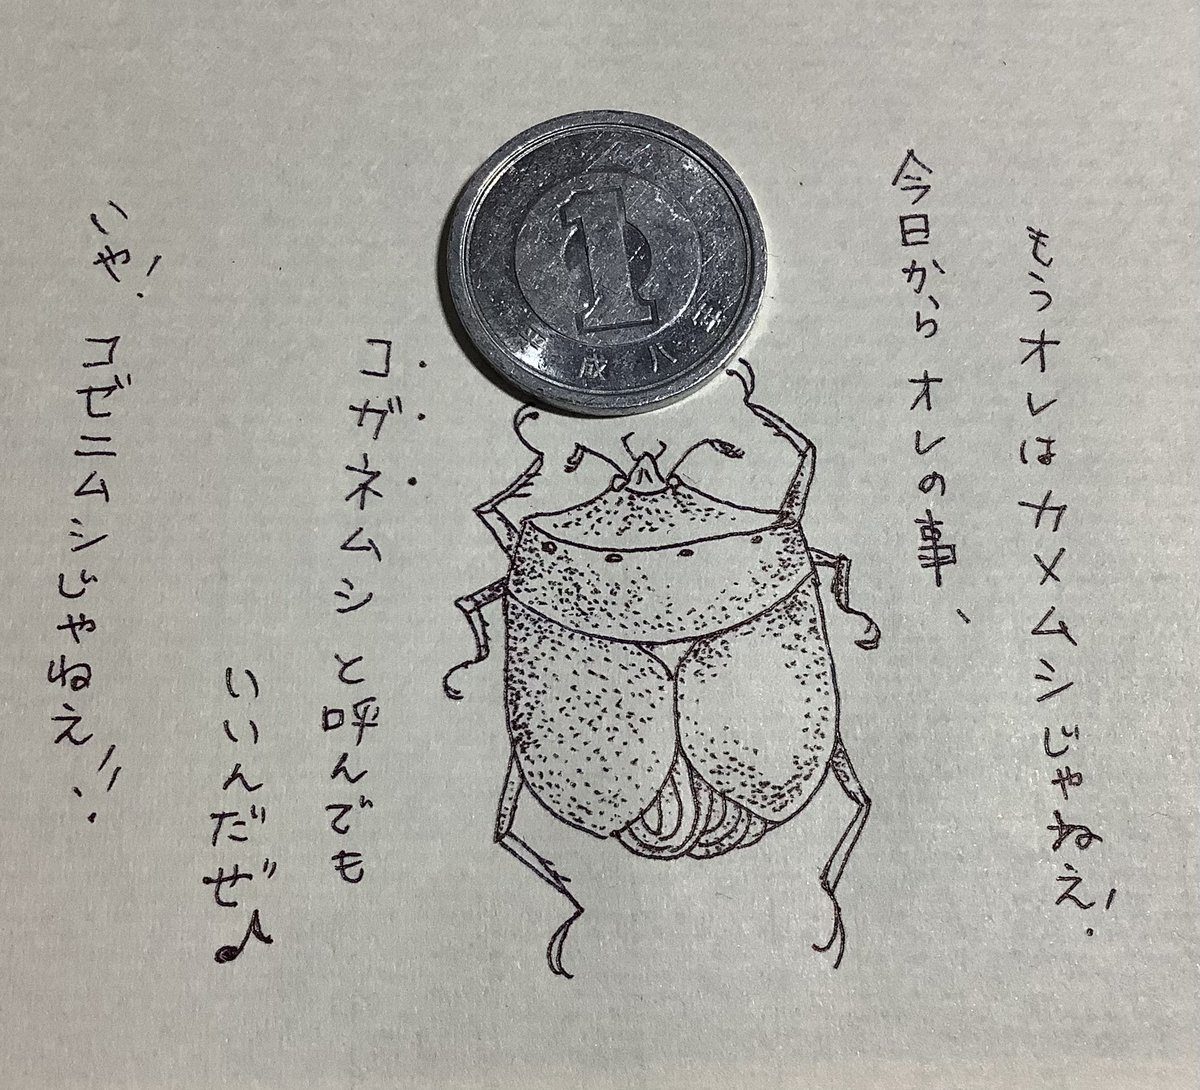 もうオレはカメムシじゃねえ!
今日からオレの事、
コガネムシと呼んでも
いいんだぜ♪
いや! コゼニムシじゃねえ!!
1
平成八年